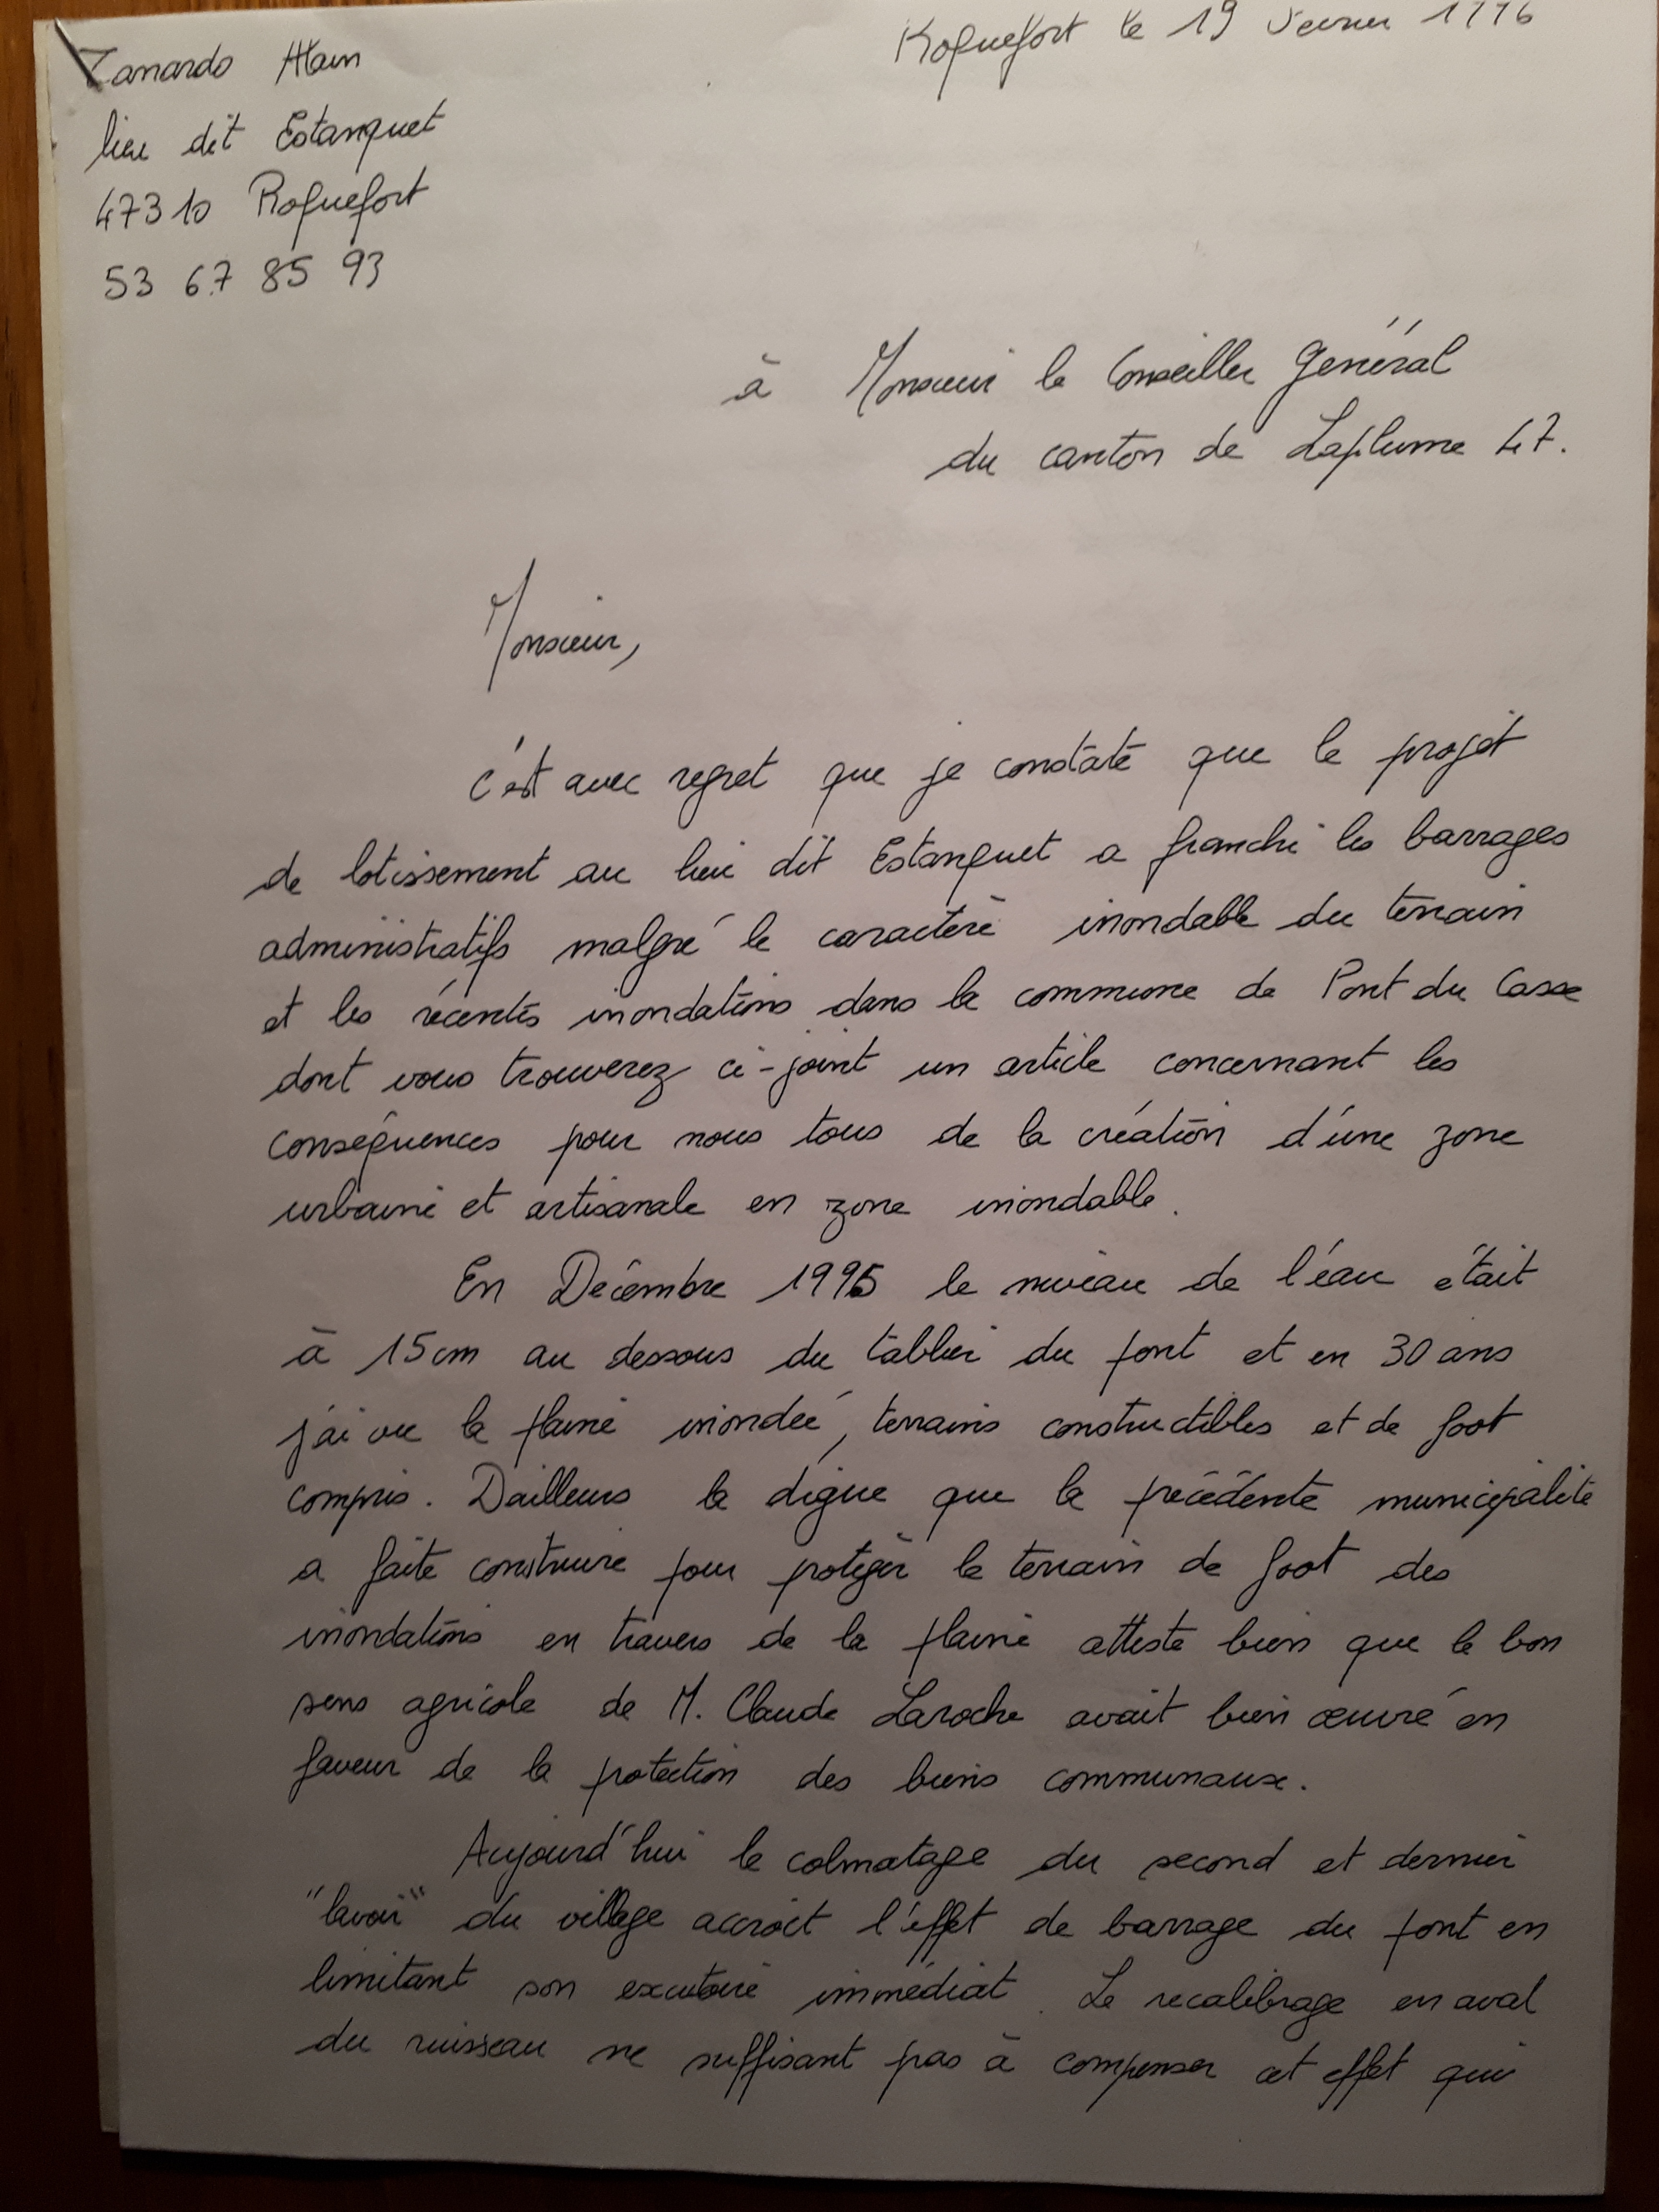 Zanardo Alain
lieu dit Estanquet
47310 Roquefort
53 67 85 93
Roquefort le 19 1996
à Monsieur le Conseiller Général
du canton de Laplume 47.
Monsieur,
c'est avec regret que je constate que le projet
de lotissement au lieu dit Estanquet a franchi les barrages
administratifs malgré le caractère inondable du terrain
et les récentes inondations dans la commune de Pont du Casse
dont vous trouverez ci-joint un article concernant les
conséquences pour nous tous de la création d'une zone
urbaine et artisanale en zone inondable.
En Décembre 1995 le niveau de l'eau était
à 15cm au dessous du tablier du pont et en 30 ans
j'ai vu la plaine inondée, terrains constructibles et de foot
compris. Dailleurs la digue que la précédente municipalité
a faite construire pour protéger le terrain de foot des
inondations en travers de la plaine atteste bien que le bon
sens agricole de M. Claude Laroche avait bien œuvré en
faveur de la protection des biens communaux.
Aujourd'hui le colmatage du second et dernier
"lavoir" du village accroit l'effet de barrage du pont en
limitant son exutoire immédiat. Le recalibrage en aval
du ruisseau ne suffisant pas à compenser cet effet qui